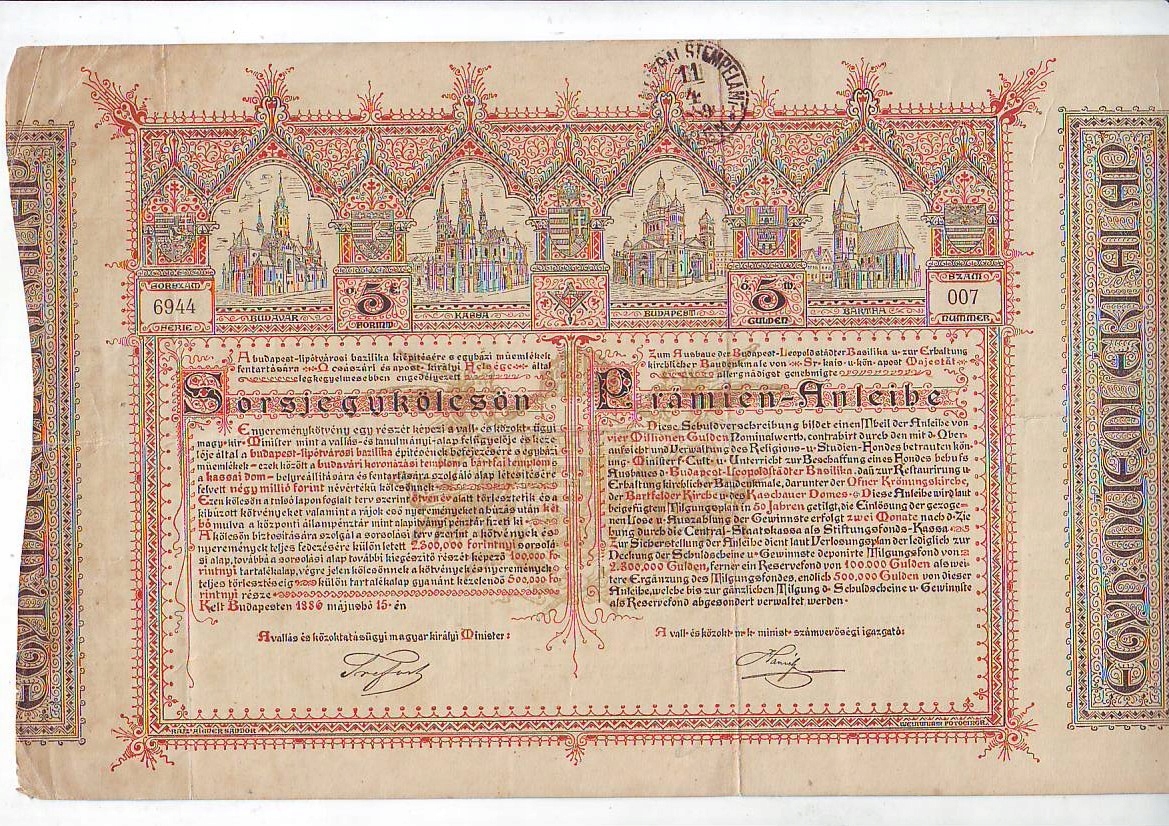 STEMPELAMT
11
4
WIEN
SORSZÁM
6944
SERIE
BUDAVÁR
O. É.
5
FORINT
KASSA
BUDAPEST
Ö. W.
5
GULDEN
BARTFA
SZÁM
007
NUMMER
A budapest-lipótvárosi bazilika kiépitésére s egyházi müemlékek
fentartására Ő császári és apost. királyi Felsége által
legkegyelmesebben engedélyezett
Sorsjegykölcsön
E nyereménykötvény egy részét képezi a vall- és közokt- ügyi
magy- kir- Minister mint a vallás- és tanulmányi-alap felügyelője és keze-
lője által a budapest-lipótvárosi bazilika épitésének befejezésére s egyházi
müemlékek - ezek között a budavári koronázási templom a bártfai templom s
a kassai dom - helyreállitására és fentartására szolgáló alap létesitésére
felvett négy millió forint névértékü kölcsönnek
Ezen kölcsön a felső lapon foglalt terv szerint ötven év alatt törlesztetik és a
kihúzott kötvényeket valamint a rájok eső nyereményeket a húzás után két
hó mulva a központi állampénztár mint alapitványi pénztár fizeti ki
A kölcsön biztositására szolgál a sorsolási terv szerint a kötvények és
nyeremények teljes fedezésére külön letett 2.800,000 forintnyi sorsolá-
si alap, továbbá a sorsolási alap további kiegészitő részét képező 100,000 fo-
rintnyi tartalékalap, végre jelen kölcsönnek a kötvények és nyeremények
teljes törlesztéseig külön tartalékalap gyanánt kezelendő 500,000 fo-
rintnyi része
Kelt Budapesten 1886 májushó 15-én
A vallás és közoktatásügyi magyar királyi Minister:
Trefort
Zum Ausbaue der Budapest-Leopoldstädter Basilika u- zur Erhaltung
kirchlicher Baudenkmale von Sr- kais- u- kön- apost Majestät
allergnädigst genehmigte
Prämien-Anleihe
Diese Schuldverschreibung bildet einen Theil der Anleihe von
vier Millionen Gulden Nominalwerth, contrahirt durch den mit d- Ober-
aufsicht und Verwaltung des Religions- u- Studien-Fondes betrauten kön-
ung- Minister f- Cult- u- Unterricht zur Beschaffung eines Fondes behufs
Ausbaues d- Budapest-Leopoldstädter Basilika, dan zur Restaurirung u-
Erhaltung kirchlicher Baudenkmale, darunter der Ofner Krönungskirche,
der Bartfelder Kirche u- des Kaschauer Domes- Diese Anleihe wird laut
beigefügtem Tilgungsplan in 50 Jahren getilgt, die Einlösung der gezoge-
nen Lose u- Auszahlung der Gewinnste erfolgt zwei Monate nach d- Zie-
hung durch die Central-Staatskassa als Stiftungsfonds-Kassa
Zur Sicherstellung der Anleihe dient laut Verlosungsplan der lediglich zur
Deckung der Schuldscheine u- Gewinnste deponirte Tilgungsfond von
2.800,000 Gulden, ferner ein Reservefond von 100.000 Gulden als wei-
tere Ergänzung des Tilgungsfondes, endlich 500,000 Gulden von dieser
Anleihe, welche bis zur gänzlichen Tilgung d- Schuldscheine u- Gewinnste
als Reservefond abgesondert verwaltet werden-
A vall- és közokt- m- k- minist- számvevőségi igazgató:
RAJZ. ALDER SÁNDOR